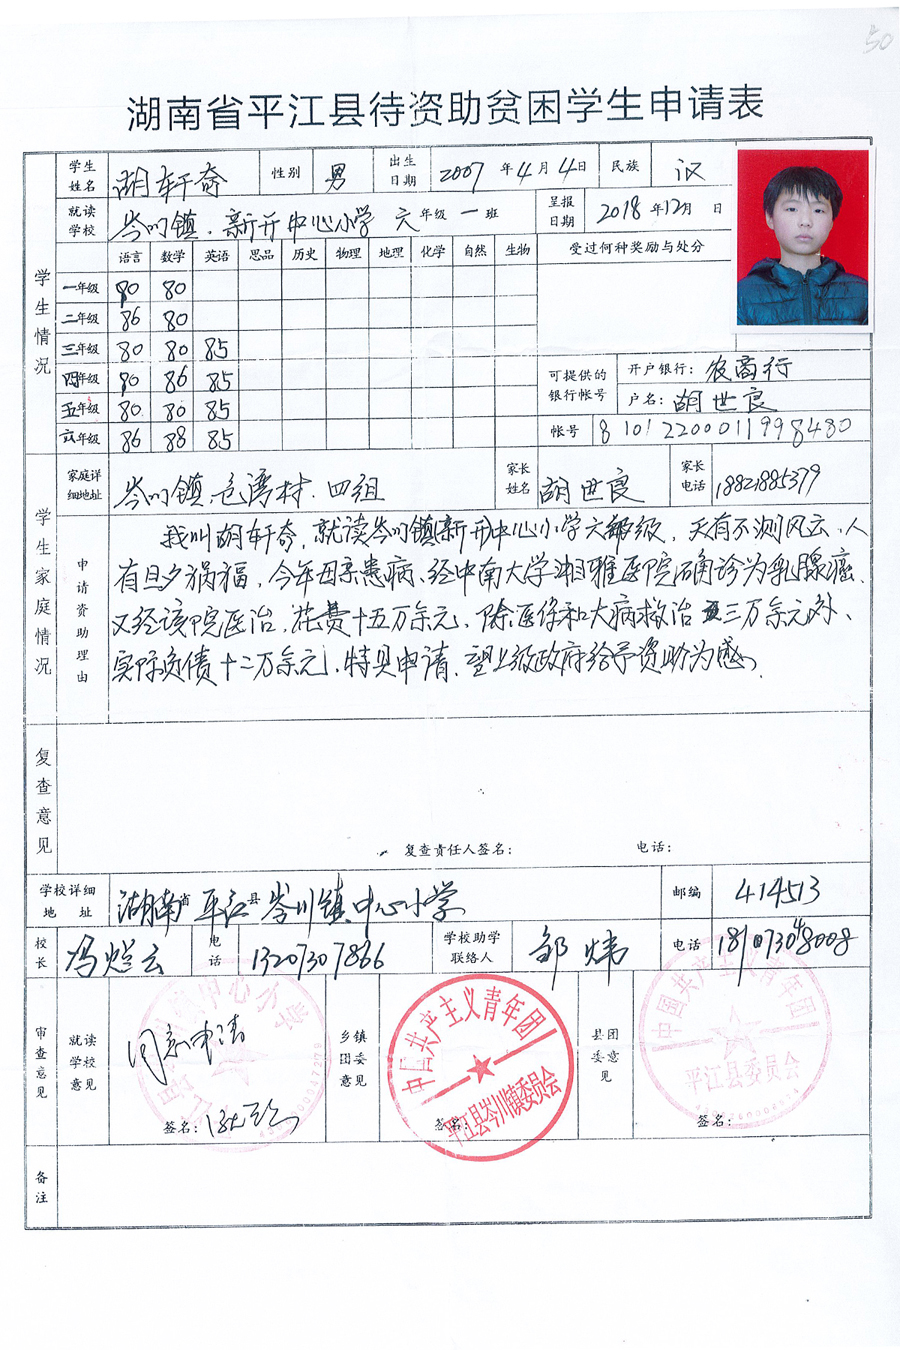 50
湖南省平江县待资助贫困学生申请表
学生姓名 胡轩奇 性别 男 出生日期 2007年4月4日 民族 汉
就读学校 岑川镇.新开中心小学 六年级一班 呈报日期 2018年12月 日
学生情况
语言 数学 英语 思品 历史 物理 地理 化学 自然 生物 受过何种奖励与处分
一年级 80 80
二年级 86 80
三年级 80 80 85
四年级 80 86 85
五年级 80 80 85
六年级 86 88 85
可提供的银行帐号 开户银行: 农商行
户名: 胡世良
帐号 81012200011998480
学生家庭情况
家庭详细地址 岑川镇.包湾村.四组 家长姓名 胡世良 家长电话 18821885379
申请资助理由
我叫胡轩奇,就读岑川镇新开中心小学六年级,天有不测风云,人
有旦夕祸福,今年母亲患病,经中南大学湘雅医院确诊为乳腺癌,
又经该院医治,花费十五万余元,除医保和大病救治三万余元外、
实际负债十二万余元,特具申请,望上级政府给予资助为感、
复查意见
复查责任人签名: 电话:
学校详细地址 湖南省平江县岑川镇中心小学 邮编 414513
校长 冯煌云 电话 13207307866 学校助学联络人 邹炜 电话 181073048008
审查意见
就读学校意见 同意申请 签名:
乡镇团委意见 中国共产主义青年团 平江县岑川镇委员会 签名:
县团委意见 中国共产主义青年团 平江县委员会 签名:
备注